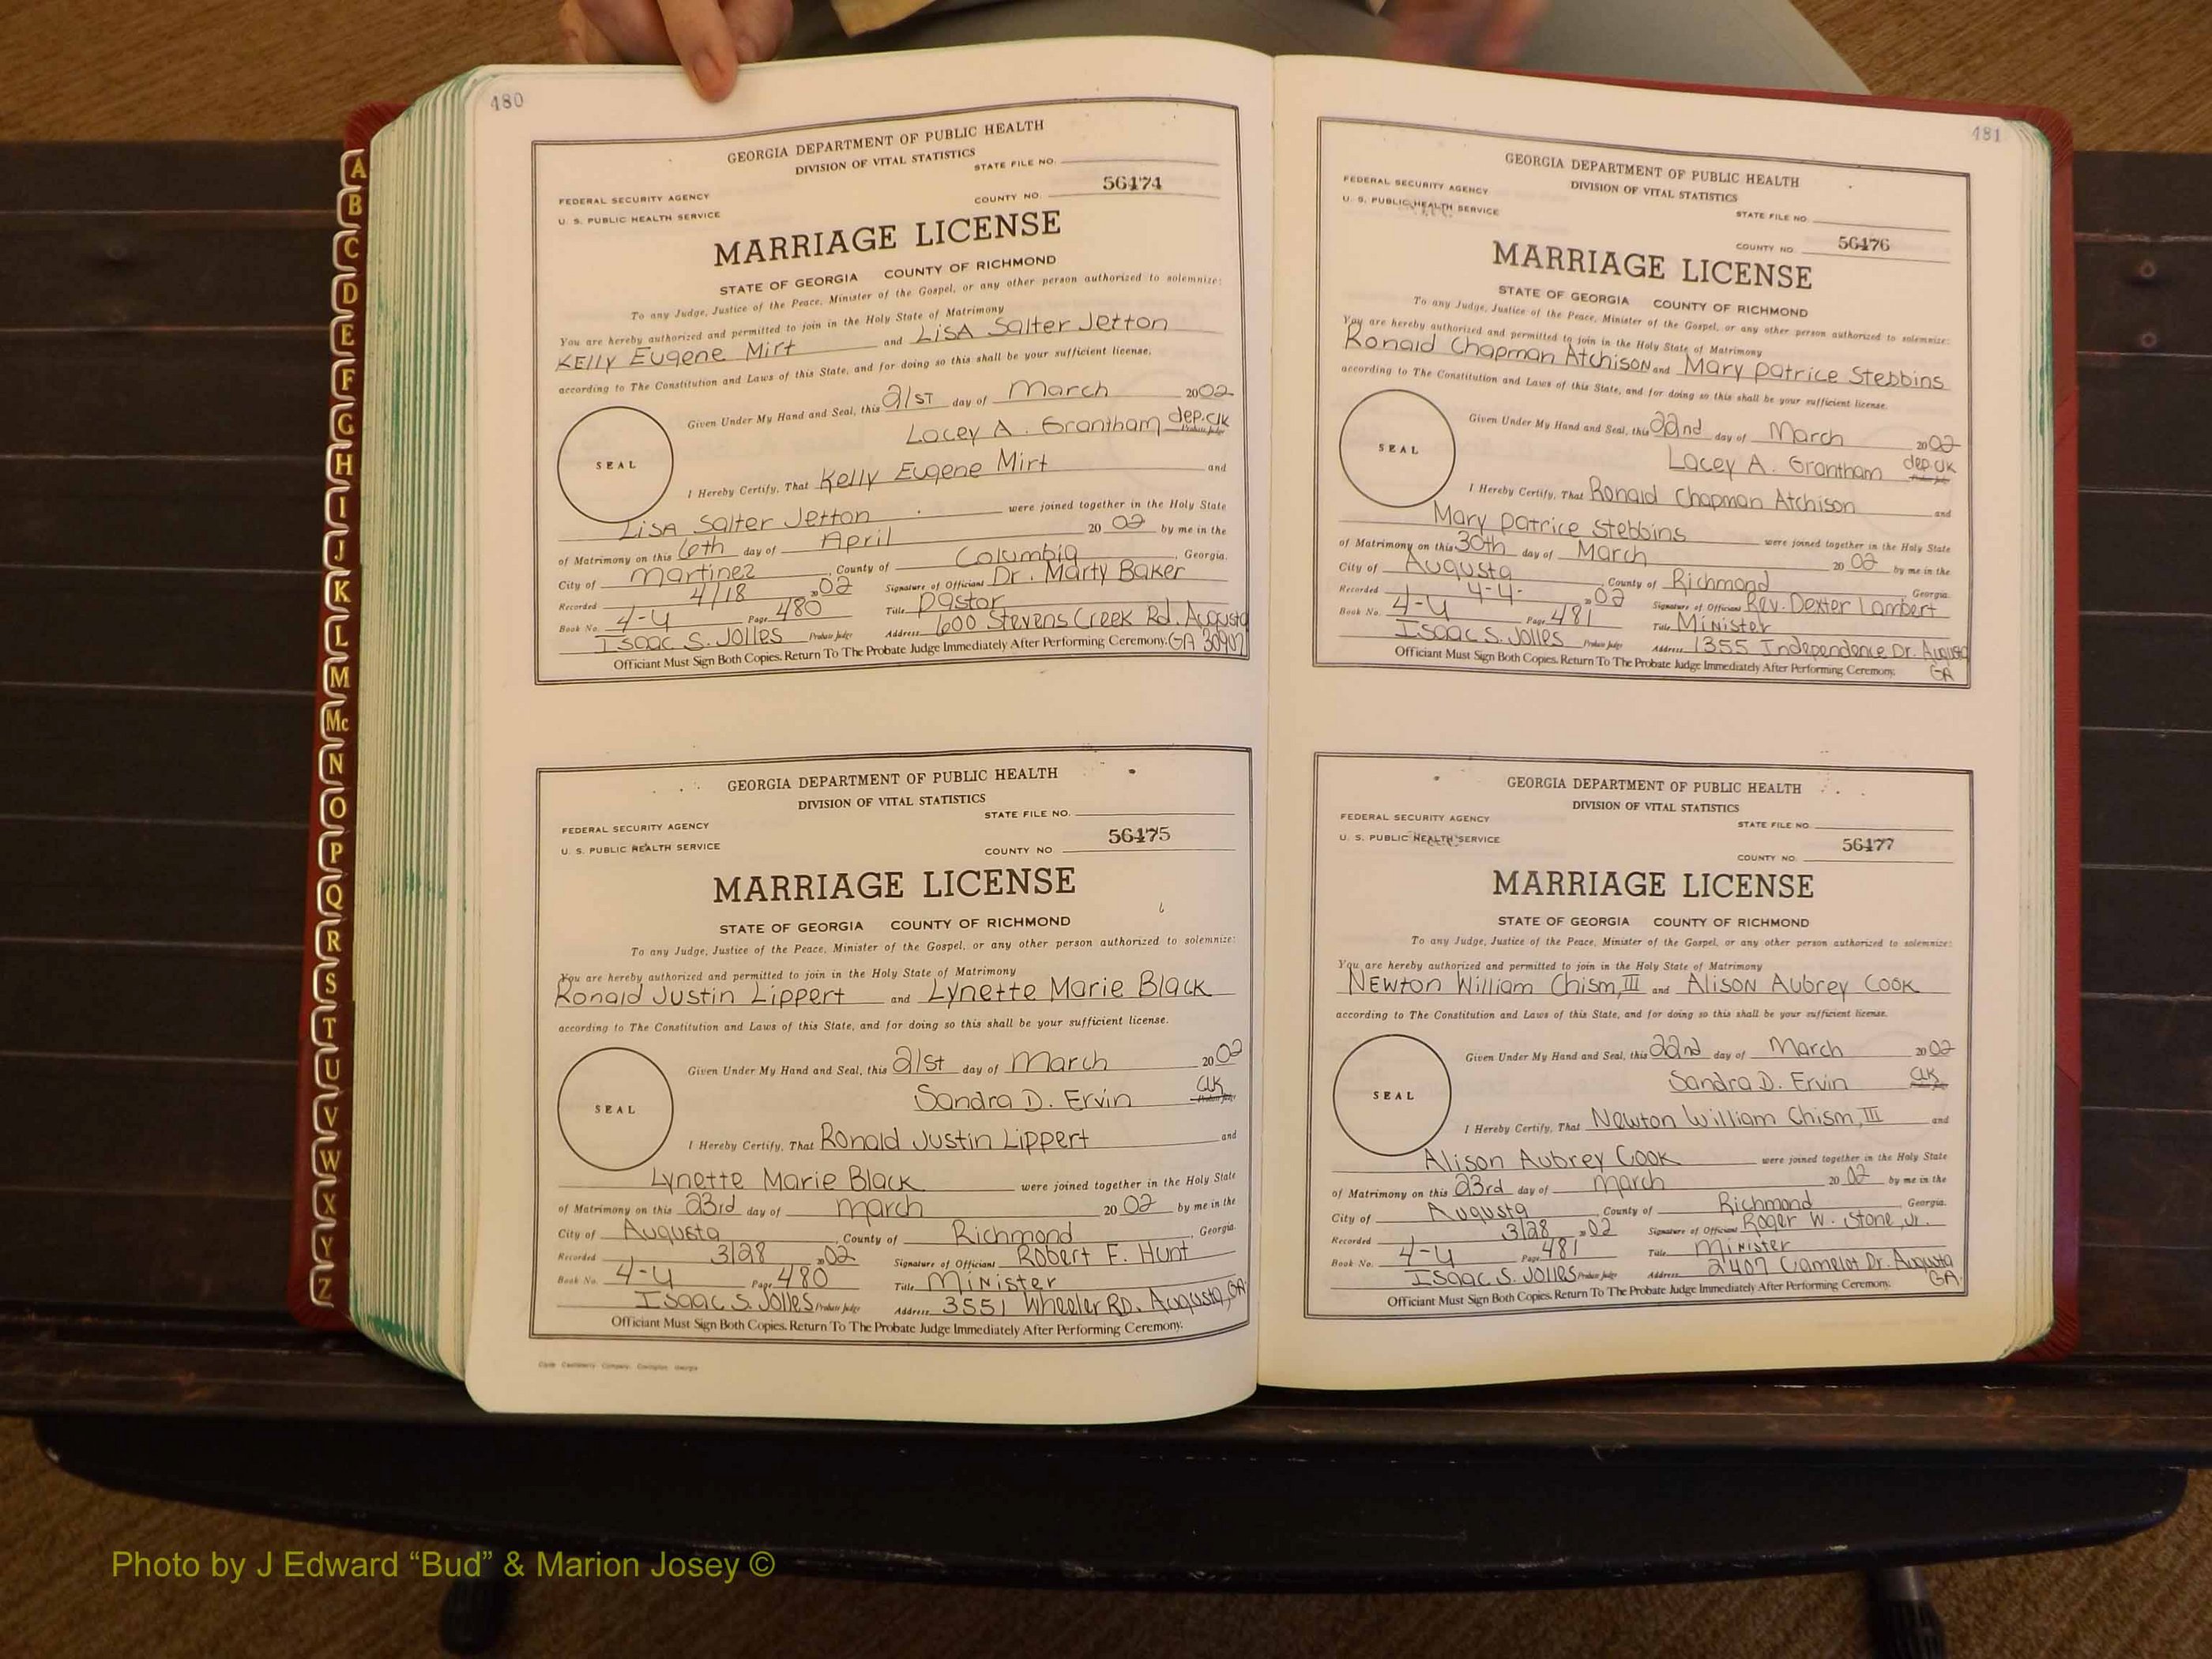 480
GEORGIA DEPARTMENT OF PUBLIC HEALTH
DIVISION OF VITAL STATISTICS
STATE FILE NO.
FEDERAL SECURITY AGENCY
U. S. PUBLIC HEALTH SERVICE
COUNTY NO. 56474
MARRIAGE LICENSE
STATE OF GEORGIA COUNTY OF RICHMOND
To any Judge, Justice of the Peace, Minister of the Gospel, or any other person authorized to solemnize:
You are hereby authorized and permitted to join in the Holy State of Matrimony
Kelly Eugene Mirt and Lisa Salter Jetton
according to The Constitution and Laws of this State, and for doing so this shall be your sufficient license.
Given Under My Hand and Seal, this 21st day of March 2002
Lacey A. Grantham dep.clk Probate Judge
SEAL
I Hereby Certify, That Kelly Eugene Mirt and
Lisa Salter Jetton were joined together in the Holy State
of Matrimony on this 6th day of April 20 02 by me in the
City of Martinez, County of Columbia, Georgia.
Recorded 4/18 2002 Signature of Official Dr. Marty Baker
Book No. 4-U Page 480 Title Pastor
Isaac S. Jolles Probate Judge Address 600 Stevens Creek Rd. Augusta
Officiant Must Sign Both Copies. Return To The Probate Judge Immediately After Performing Ceremony. GA 30907
GEORGIA DEPARTMENT OF PUBLIC HEALTH
DIVISION OF VITAL STATISTICS
STATE FILE NO.
FEDERAL SECURITY AGENCY
U. S. PUBLIC HEALTH SERVICE
COUNTY NO. 56475
MARRIAGE LICENSE
STATE OF GEORGIA COUNTY OF RICHMOND
To any Judge, Justice of the Peace, Minister of the Gospel, or any other person authorized to solemnize:
You are hereby authorized and permitted to join in the Holy State of Matrimony
Ronald Justin Lippert and Lynette Marie Black
according to The Constitution and Laws of this State, and for doing so this shall be your sufficient license.
Given Under My Hand and Seal, this 21st day of March 2002
Sandra D. Ervin Clk Probate Judge
SEAL
I Hereby Certify, That Ronald Justin Lippert and
Lynette Marie Black were joined together in the Holy State
of Matrimony on this 23rd day of March 20 02 by me in the
City of Augusta, County of Richmond, Georgia.
Recorded 3/28 2002 Signature of Official Robert F. Hunt
Book No. 4-U Page 480 Title Minister
Isaac S. Jolles Probate Judge Address 3551 Wheeler RD. Augusta, GA
Officiant Must Sign Both Copies. Return To The Probate Judge Immediately After Performing Ceremony.
481
GEORGIA DEPARTMENT OF PUBLIC HEALTH
DIVISION OF VITAL STATISTICS
FEDERAL SECURITY AGENCY
U. S. PUBLIC HEALTH SERVICE
STATE FILE NO.
COUNTY NO. 56476
MARRIAGE LICENSE
STATE OF GEORGIA COUNTY OF RICHMOND
To any Judge, Justice of the Peace, Minister of the Gospel, or any other person authorized to solemnize:
You are hereby authorized and permitted to join in the Holy State of Matrimony
Ronald Chapman Atchison and Mary Patrice Stebbins
according to The Constitution and Laws of this State, and for doing so this shall be your sufficient license.
Given Under My Hand and Seal, this 22nd day of March 2002
Lacey A. Grantham dep.clk
SEAL
I Hereby Certify, That Ronald Chapman Atchison and
Mary Patrice Stebbins were joined together in the Holy State
of Matrimony on this 30th day of March 20 02 by me in the
City of Augusta, County of Richmond Georgia.
Recorded 4-4- 2002 Signature of Official Rev. Dexter Lambert
Book No. 4-U Page 481 Title Minister
Isaac S. Jolles Probate Judge Address 1355 Independence Dr. Augusta
Officiant Must Sign Both Copies. Return To The Probate Judge Immediately After Performing Ceremony. GA
GEORGIA DEPARTMENT OF PUBLIC HEALTH
DIVISION OF VITAL STATISTICS
FEDERAL SECURITY AGENCY
U. S. PUBLIC HEALTH SERVICE
STATE FILE NO.
COUNTY NO. 56477
MARRIAGE LICENSE
STATE OF GEORGIA COUNTY OF RICHMOND
To any Judge, Justice of the Peace, Minister of the Gospel, or any other person authorized to solemnize:
You are hereby authorized and permitted to join in the Holy State of Matrimony
Newton William Chism, III and Alison Aubrey Cook
according to The Constitution and Laws of this State, and for doing so this shall be your sufficient license.
Given Under My Hand and Seal, this 22nd day of March 2002
Sandra D. Ervin Clk Probate Judge
SEAL
I Hereby Certify, That Newton William Chism, III and
Alison Aubrey Cook were joined together in the Holy State
of Matrimony on this 23rd day of March 20 02 by me in the
City of Augusta, County of Richmond Georgia.
Recorded 3/28 2002 Signature of Official Roger W. Stone, Jr.
Book No. 4-U Page 481 Title Minister
Isaac S. Jolles Probate Judge Address 2407 Camelot Dr. Augusta
Officiant Must Sign Both Copies. Return To The Probate Judge Immediately After Performing Ceremony. GA.
A
B
C
D
E
F
G
H
I
J
K
L
M
Mc
N
O
P
Q
R
S
T
U
V
W
X
Y
Z
Photo by J Edward “Bud” & Marion Josey ©